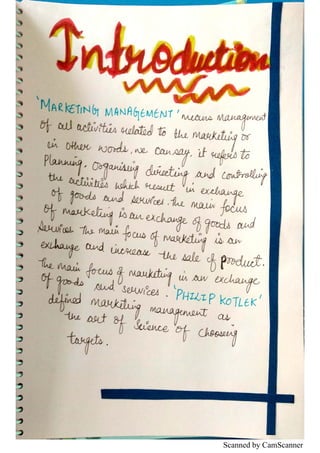 Introduction
'MARKETING MANAGEMENT' means Management
of all activities related to the marketing or
in other words, we can say, it refers to
Planning. Organising directing and controlling
the activities which result in exchange
of goods and services. The main focus
of marketing is an exchange of goods and
services. The main focus of marketing is an
exchange and increase the sale of Product.
The main focus of marketing is an exchange
of goods and services. 'PHILIP KOTLEK'
defined marketing management as
the art of Science of choosing
targets.
Scanned by CamScanner